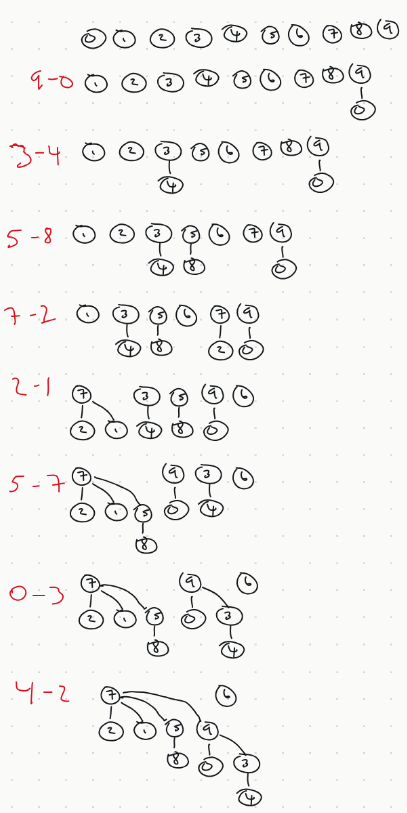 0 1 2 3 4 5 6 7 8 9
9-0 1 2 3 4 5 6 7 8 9
0
3-4 1 2 3 5 6 7 8 9
4 0
5-8 1 2 3 5 6 7 9
4 8 0
7-2 1 3 5 6 7 9
4 8 2 0
2-1 7 3 5 9 6
2 1 4 8 0
5-7 7 9 3 6
2 1 5 0 4
8
0-3 7 9 6
2 1 5 0 3
8 4
4-2 7 6
2 1 5 9
8 0 3
4